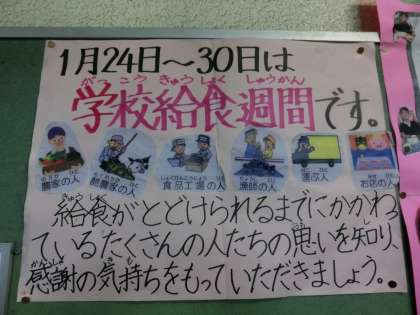 1月24日～30日は
がっこう きゅうしょく しゅうかん
学校給食週間です。
農家の人 酪農家の人 食品工場の人 漁師の人 運ぶ人 お店の人
給食がとどけられるまでにかかわっ
ているたくさんの人たちの思いを知り、
感謝の気持ちをもっていただきましょう。